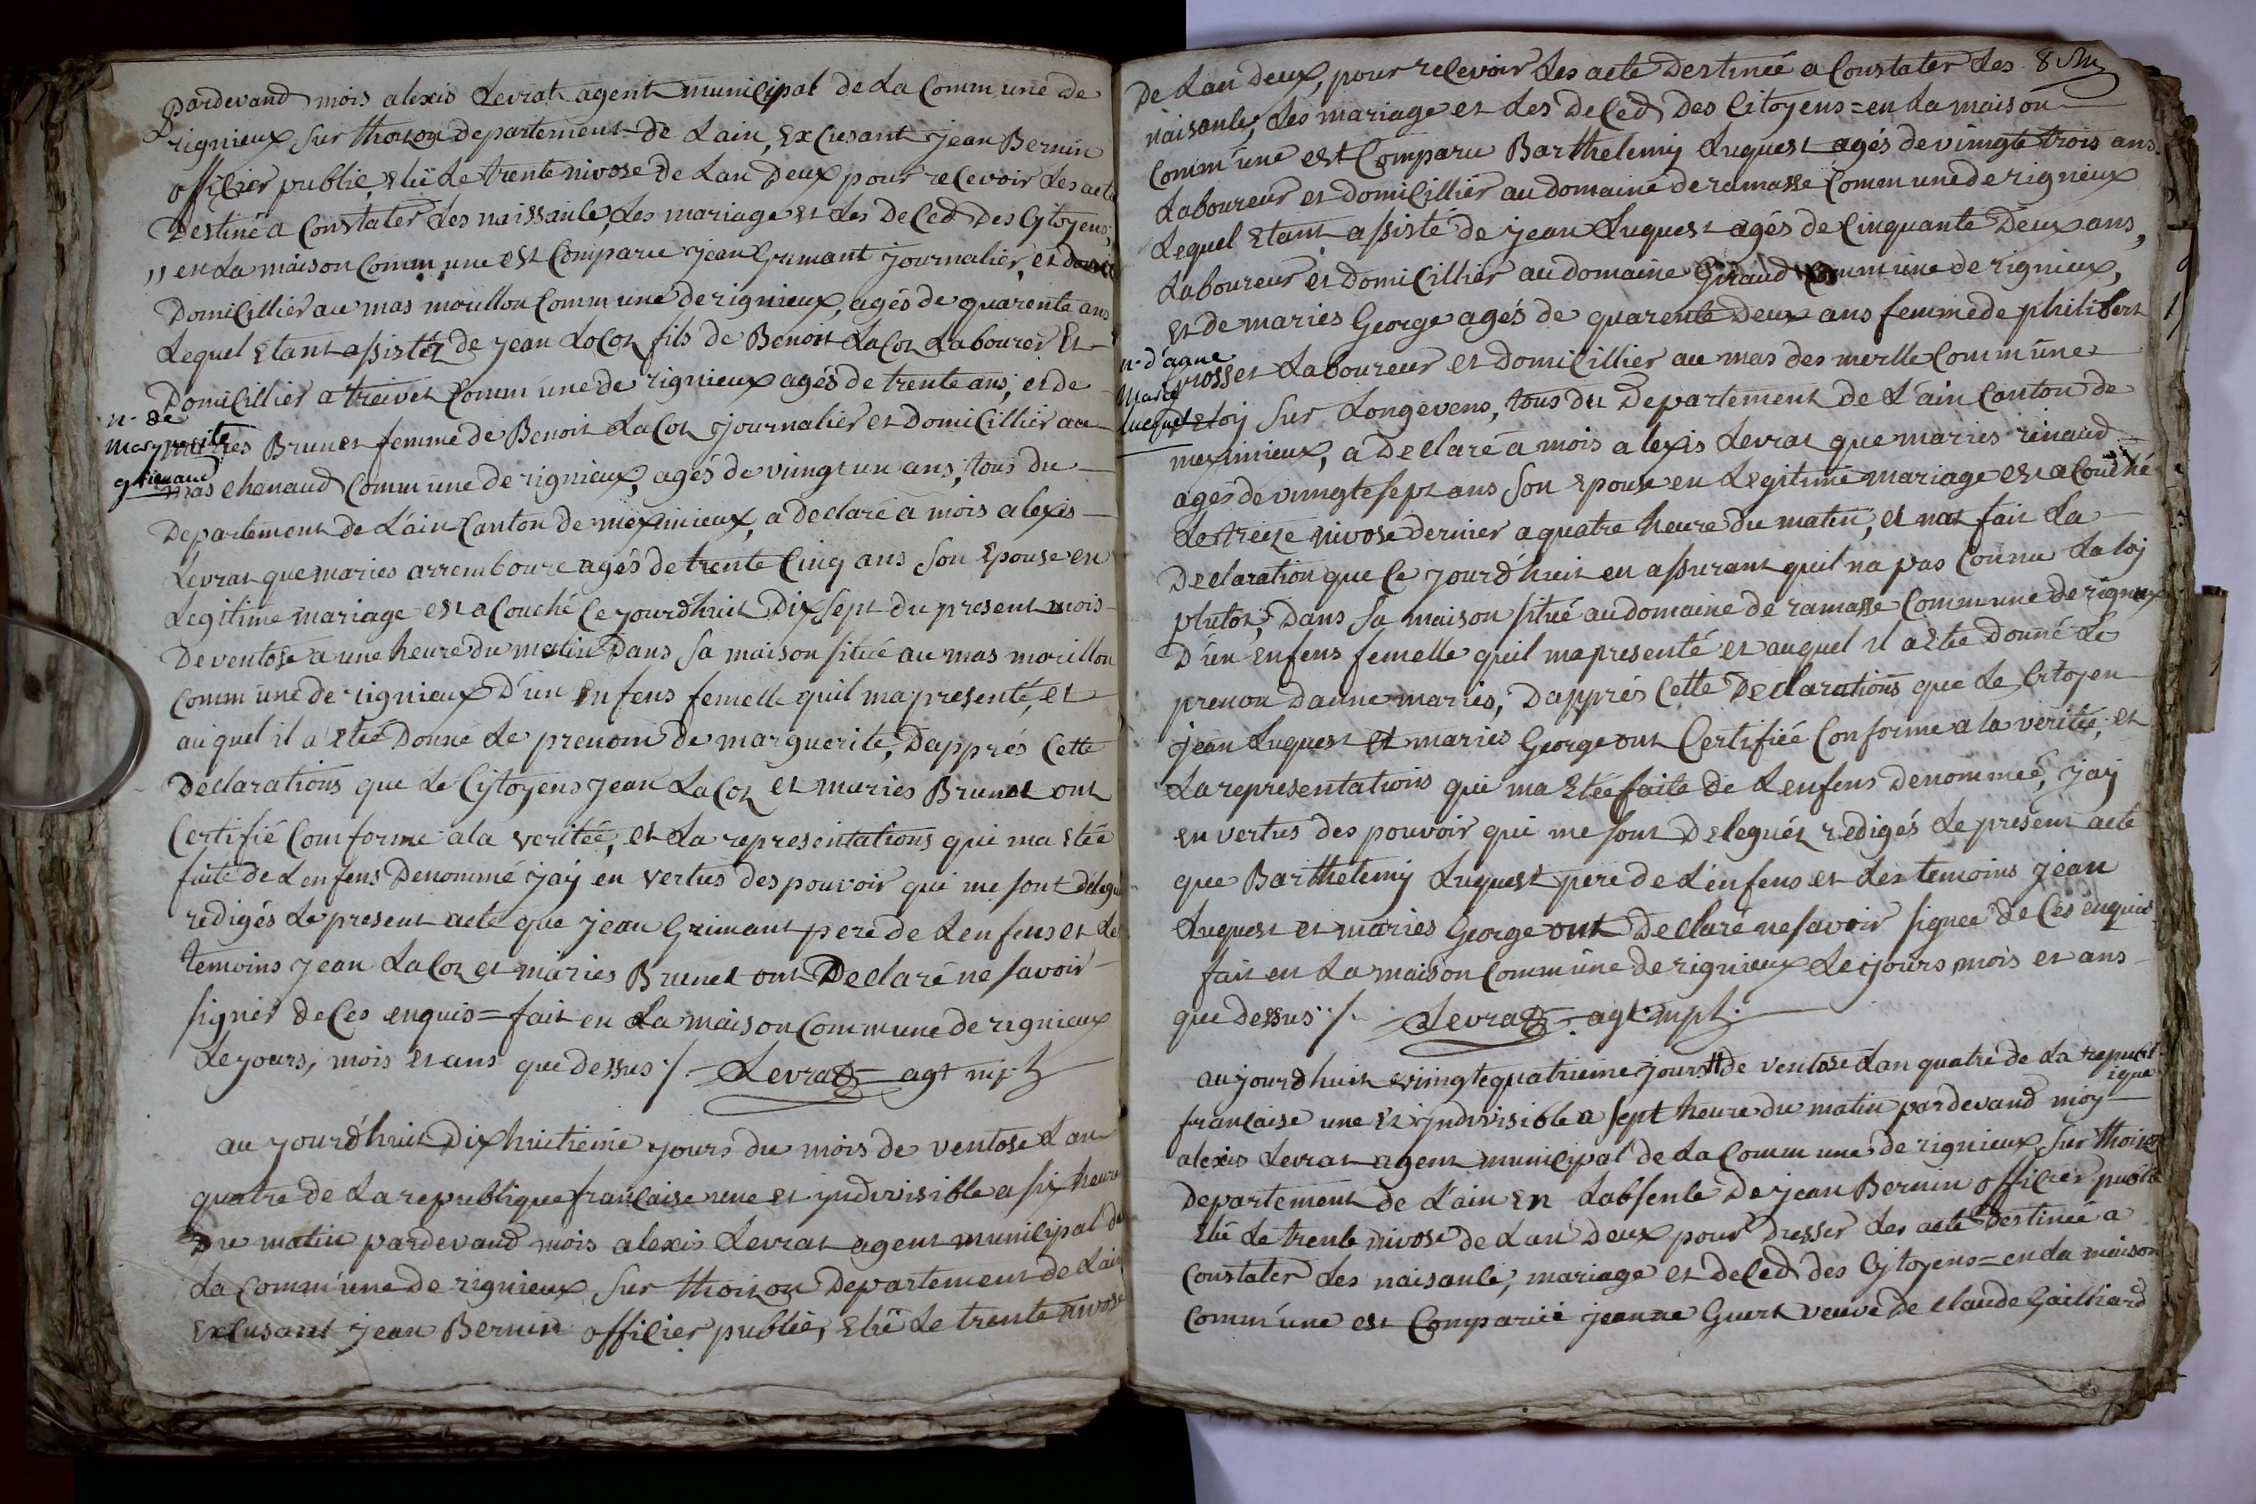 pardevand mois alexis Levrat agent municipal de La Commune de
rignieux sur thoizon departement de Lain, Excusant jean Bernin
officier publie, Elûe Le trente nivose de Lan Deux pour recevoir Les acte
Destiné a Constater Les naissanle, Les mariage et Les Deced Des Cytoyens,
,, en La maison Commune est Comparu jean Grimant journalier, et
Domicillier au mas morillon Commune de rignieux, agés de quarente ans
Lequel Etant assistéz de jean LaCot fils de Benoit LaCot Labourer Et
Domicillier a treivet Commune de rignieux agés de trente ans, et de
n. de
Marguerite
grimand
maries Brunet femme de Benoit LaCot journalier et Domicillier au
mas chanaud Commune de rignieux, agés de vingt un ans, tous du
Departement de L'ain Canton de meximieux, a declaré a mois alexis
Levrat que maries arremboure agés de trente Cinq ans son Epouse en
Legitime mariage est acouché Ce jourdhuit Dix sept du present mois
De ventose a une heure du matin Dans sa maison situé au mas morillon
Commune de rignieux D'un Enfens femelle quil ma presenté, et
auquel il a Eté Donné Le prenom de marguerite, Dapprés Cette
Déclarations que Le Cytoyens jean LaCot et maries Brunet ont
Certifié Comforme a la veritée, et La representations qui ma Etée
faite de Lenfens Denommé jaÿ en vertus des pouvoir qui me sont délegué
redigés Le present acte que jean Grimant pere de Lenfens et Les
temoins jean LaCot et maries Brunet ont Declaré ne savoir
signer de Ces enquis = fait en La maison Commune de rignieux
Le jours, mois et ans que dessus ./. Levrat agt mpl
au jourdhuit Dix huitieme jours du mois de ventose Lan
quatre de La republique française une et yndivisible a six heure
Du matin pardevand mois alexis Levrat agent municipal de
La Commune de rignieux sur thoizon Departement de Lain
Excusant jean Bernin officier publie, Elûe Le trente nivose
8
De Lan Deux, pour recevoir Les acte Destinée a Constater Les
naisanle, Les mariage et Les DeCed Des Citoyens = en La maison
Commune est Comparu Barthelemy Luquet agés de vingte trois ans
Laboureur et domicillier au domaine de ramasse Commune de rignieux
Lequel Etant assisté de jean Luquest agés de Cinquante Deux ans,
Laboureur et domicillier au domaine Giraud Commune de rignieux,
et de maries George agés de quarente Deux ans femme de philibert
n. d'anne
Marie
Luquet
rosset Laboureur et Domicillier au mas des merlle Commune
De Loÿ sur Longevens, tous du Departement de L'ain Canton de
meximieux, a declaré a mois alexis Levrat que maries rinaud
agés de vingte sept ans son Epouse en Legitime mariage est acouché
Le treize nivose dernier a quatre heure du matin, et nat fait La
Declaration que Ce jourdhuit en assurant quil na pas Connu La loÿ
plutot, Dans sa maison situé au domaine de ramasse Commune de rignieux
D'un Enfens femelle quil ma presenté et auquel il a Eté donné Le
prenon Danne maries, Dapprés Cette Declarations que Le Citoyen
jean Luquest et maries George ont Certifiée Conforme a la veritée, et
La representations qui ma Etée faite de Lenfens Denommeé, jaÿ
en vertus des pouvoir qui me sont Deleguéz redigés Le present acte
que Barthelemy Luquest pere de Lenfens et Les temoins jean
Luquest et maries George ont Declaré ne savoir signee de Ces enquis
fait en La maison Commune de rignieux Le jours mois et ans
que dessus ./. Levrat agt mpl.
aujourdhuit vingtequatrieme jours de ventose Lan quatre de La republique
française une Et yndivisible a sept heure du matin pardevand moy
alexis Levrat agent municipal de La Commune de rignieux sur thoizon
Departement de L'ain En Labsenle De jean Bernin officier public
Elû Le trente nivose de Lan Deux pour Dresser Les acte destineé a
Constater Les naisanle, mariage et deced des Cytoyens = en La maison
Commune est Compariée jeanne Guert veuve de Claude Gailliard